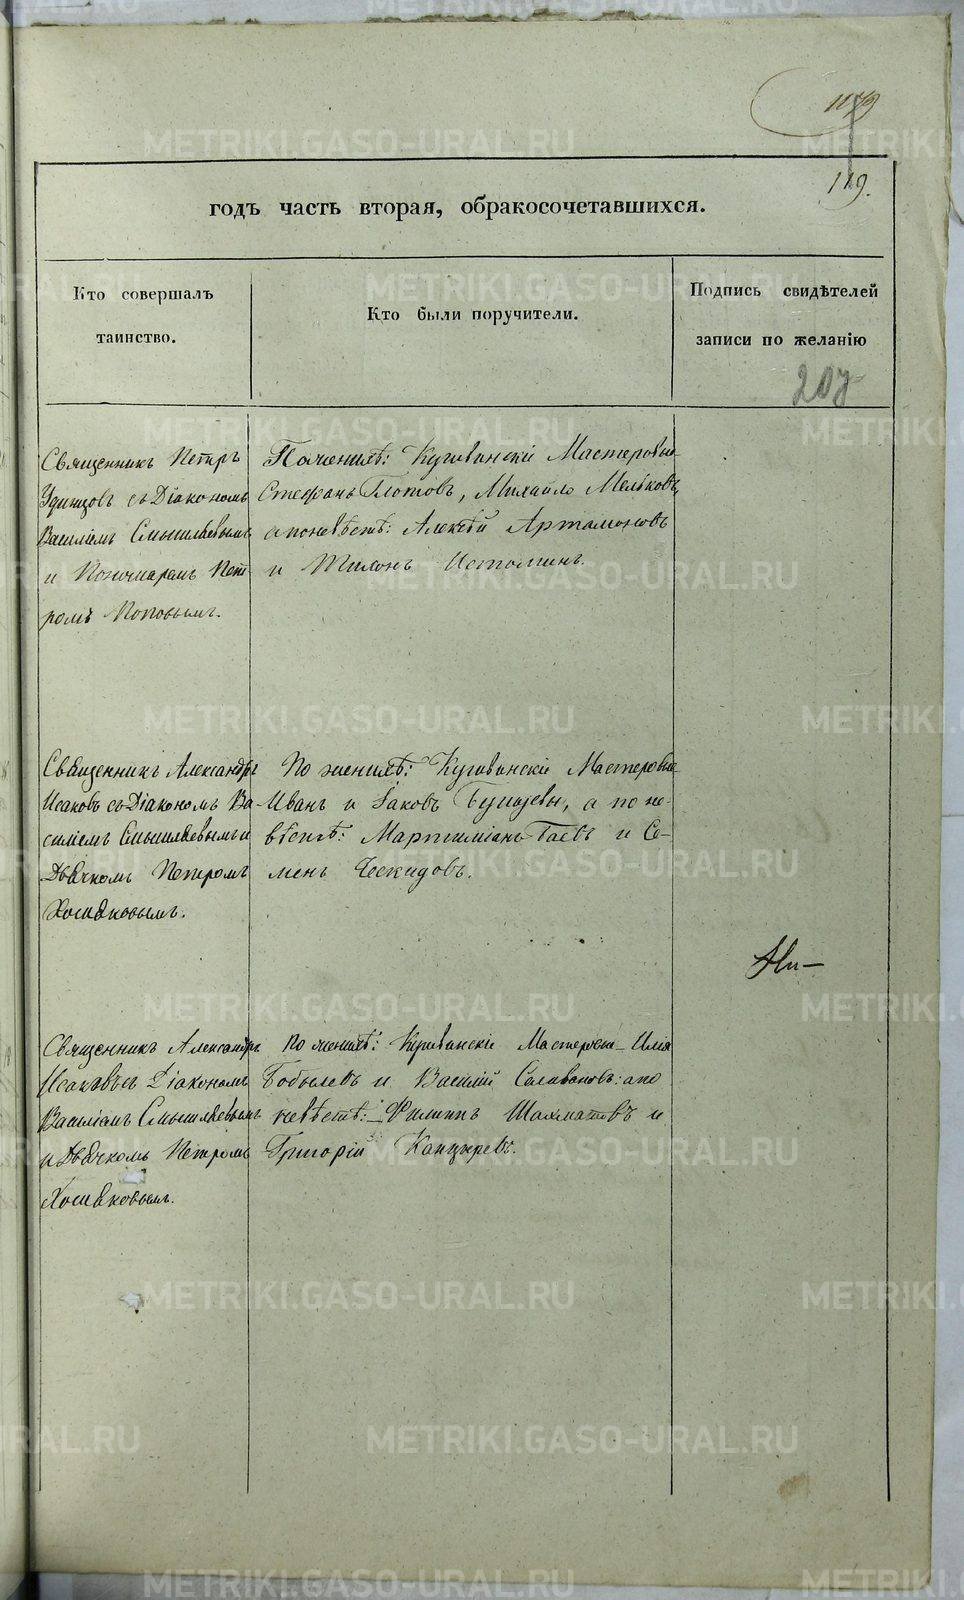 119.
годъ часть вторая, обракосочетавшихся.
Кто совершалъ
таинство.
Кто были поручители.
Подпись свидѣтелей
записи по желанію
207
Священникъ Петръ
Удинцовъ съ Діакономъ
Василіемъ Смышляевымъ
и Пономаремъ Пет-
ромъ Поповымъ.
По женихѣ: Кушвинскіе Мастеровые
Стефанъ Глотовъ, Михайло Мельковъ,
а по невѣстѣ: Алексѣй Артамоновъ
и Тихонъ Истоминъ.
Священникъ Александръ
Исаковъ съ Діакономъ Ва-
силіемъ Смышляевымъ и
Дьячкомъ Петромъ
По женихѣ: Кушвинскіе Мастеровые
Иванъ и Іаковъ а по не-
вѣстѣ: Мартиміанъ Гаевъ и Се-
менъ Ческидовъ.
Священникъ Александръ
Исаковъ съ Діакономъ
Василіемъ Смышляевымъ
и Дьячкомъ Петромъ
По женихѣ: Кушвинскіе Мастеровые Илія
Бобылевъ и Василій Селивановъ: а по
невѣстѣ: Филипъ Шахматовъ и
Григорій Канцыревъ.
METRIKI.GASO-URAL.RU